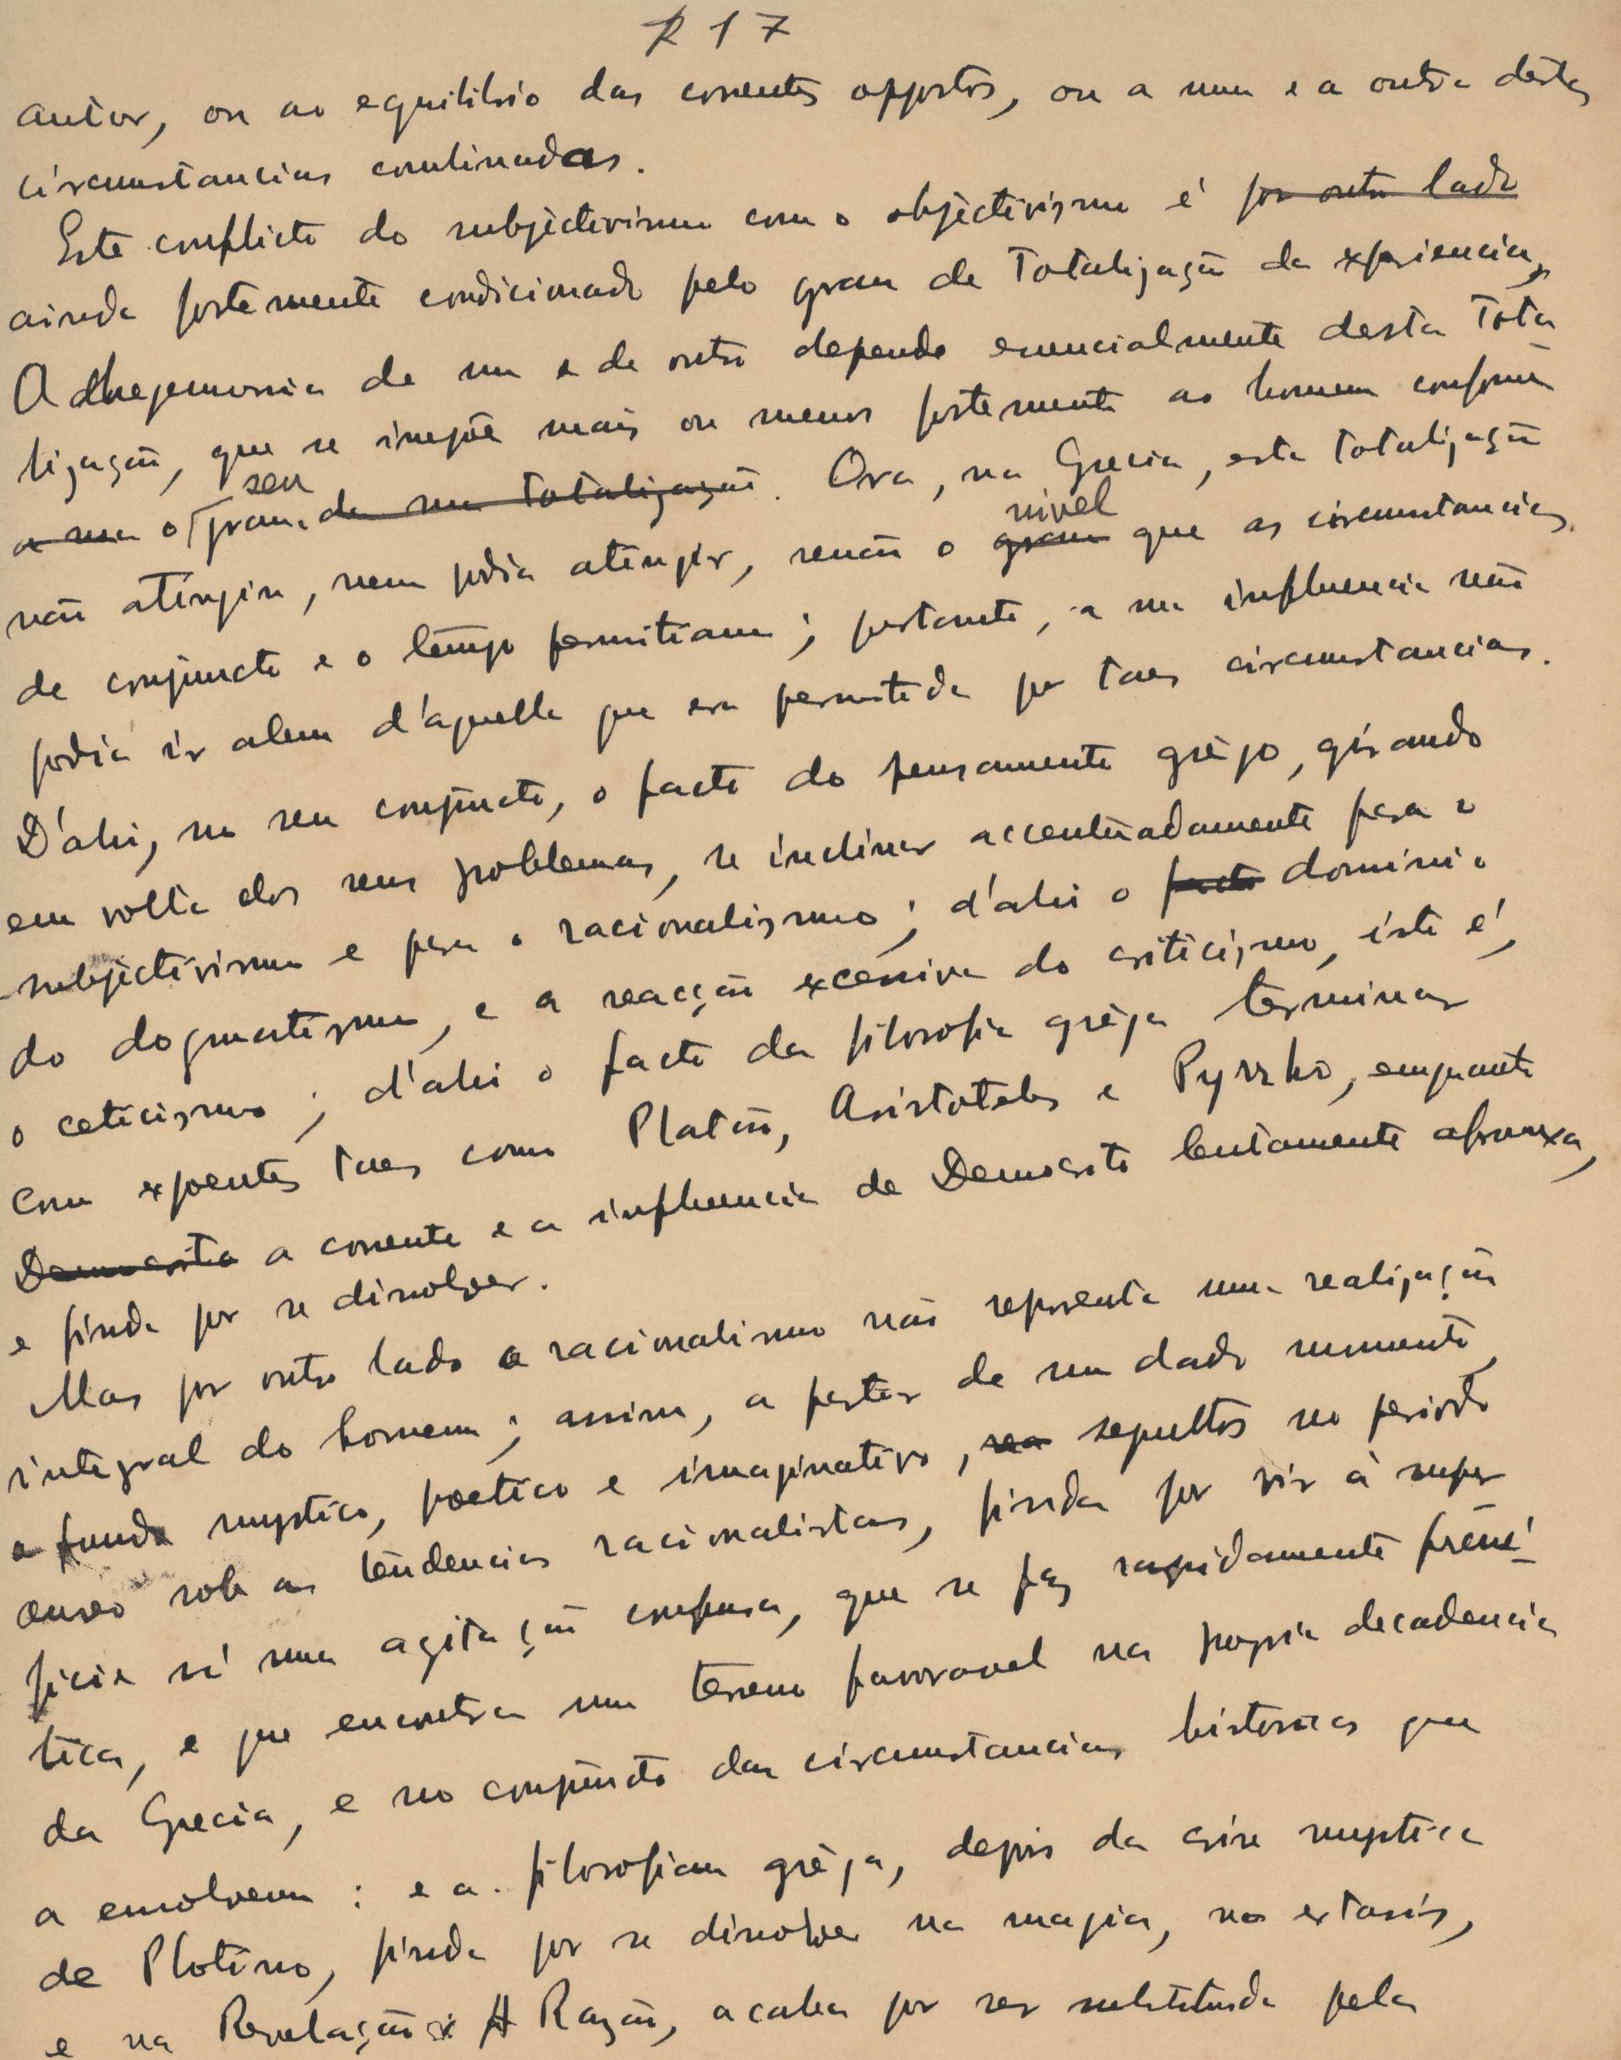 R 17
autor, ou ao equilibrio das correntes oppostas, ou a uma e a outra destas
circumstancias combinadas.
Este conflicto do subjectivismo com o objectivismo é por outro lado
ainda fortemente condicionado pelo grau de totalização da experiencia,
A hegemonia de um e de outro depende essencialmente desta tota
lização, que se impõe mais ou menos fortemente ao homem conforme
a sua o seu grau de sua totalização. Ora, na Grecia, esta totalização
não atingiu, nem podia atingir, senão o grau nivel que as circumstancias
de conjuncto e o tempo permitiam; portanto, a sua influencia não
podia ir alem d'aquella que era permitida por taes circumstancias.
D'ahi, no seu conjuncto, o facto do pensamento grêgo, girando
em volta dos seus problemas, se inclinar accentuadamente para o
subjectivismo e para o racionalismo; d'ahi o facto dominio
do dogmatismo, e a reacção excessiva do criticismo, isto é,
o ceticismo; d'ahi o facto da filosofia grêga terminar
com expoentes taes como Platão, Aristoteles e Pyrrho, emquanto
Democrito a corrente e a influencia de Democrito lentamente afrouxa,
e finda por se dissolver.
Mas por outro lado o racionalismo não representa uma realização
integral do homem; assim, a partir de um dado momento,
o fundo mystico, poetico e imaginativo, sepultos no periodo
aureo sob as tendencias racionalistas, finda por vir á super
ficie n'uma agitação confusa, que se faz rapidamente frené-
tica, e que encontra um terreno favoravel na propria decadencia
da Grecia, e no conjuncto das circumstancias historicas que
a envolvem: e a filosofia grêga, depois da crise mystica
de Plotino, finda por se dissolver na magia, no extasis,
e na Revelação A Razão, acaba por ser substituida pela